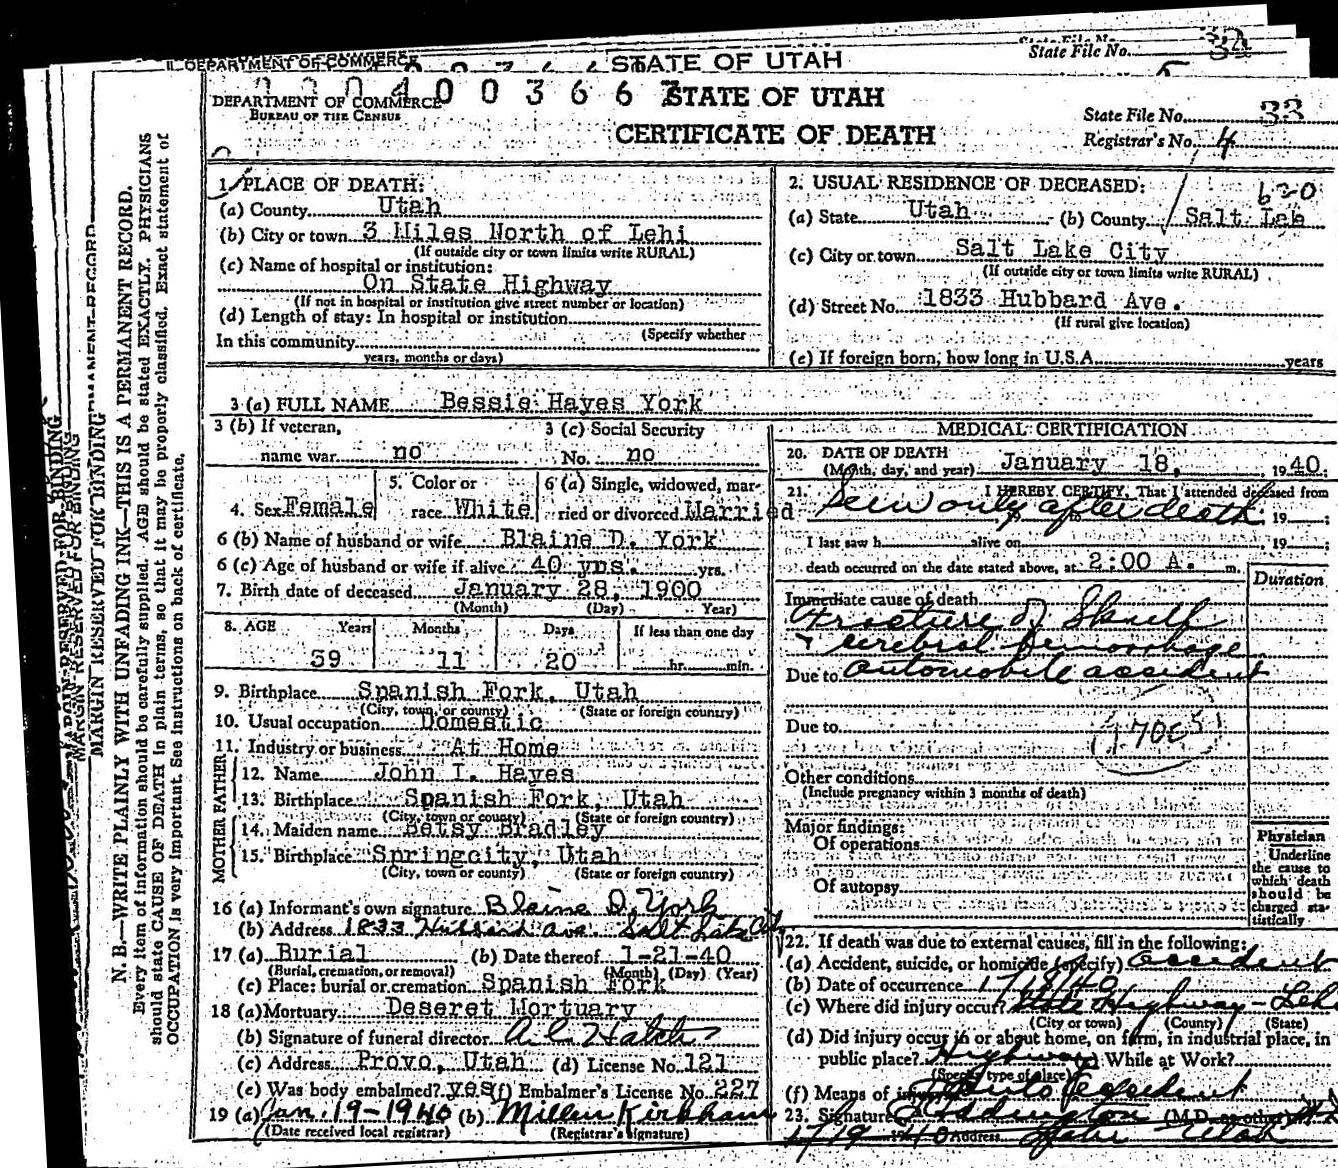 STATE OF UTAH
State File No. 34
DEPARTMENT OF COMMERCE
BUREAU OF THE CENSUS
STATE OF UTAH
CERTIFICATE OF DEATH
State File No. 33
Registrar's No. 4
1. PLACE OF DEATH:
(a) County Utah
(b) City or town 3 Miles North of Lehi
(If outside city or town limits write RURAL)
(c) Name of hospital or institution:
On State Highway
(If not in hospital or institution give street number or location)
(d) Length of stay: In hospital or institution
(Specify whether
In this community
years, months or days)
2. USUAL RESIDENCE OF DECEASED:
(a) State Utah (b) County Salt Lake
(c) City or town Salt Lake City
(If outside city or town limits write RURAL)
(d) Street No. 1833 Hubbard Ave.
(If rural give location)
(e) If foreign born, how long in U.S.A. years
3 (a) FULL NAME Bessie Hayes York
3 (b) If veteran, name war no
3 (c) Social Security No. no
4. Sex Female
5. Color or race White
6 (a) Single, widowed, married or divorced Married
6 (b) Name of husband or wife Blaine D. York
6 (c) Age of husband or wife if alive 40 yrs. yrs.
7. Birth date of deceased January 28, 1900
(Month) (Day) Year)
8. AGE Years Months Days If less than one day
39 11 20 hr. min.
9. Birthplace Spanish Fork, Utah
(City, town, or county) (State or foreign country)
10. Usual occupation Domestic
11. Industry or business At Home
FATHER
12. Name John I. Hayes
13. Birthplace Spanish Fork, Utah
(City, town or county) (State or foreign country)
MOTHER
14. Maiden name Betsy Bradley
15. Birthplace Springcity, Utah
(City, town or county) (State or foreign country)
16 (a) Informant's own signature Blaine D. York
(b) Address 1833 Hubbard Ave. Salt Lake City
17 (a) Burial (b) Date thereof 1-21-40
(Burial, cremation, or removal) (Month) (Day) (Year)
(c) Place: burial or cremation Spanish Fork
18 (a) Mortuary Deseret Mortuary
(b) Signature of funeral director
(c) Address Provo, Utah (d) License No. 121
(e) Was body embalmed? yes (f) Embalmer's License No. 227
19 (a) Jan. 19-1940 (b) Kirkham
(Date received local registrar) (Registrar's signature)
MEDICAL CERTIFICATION
20. DATE OF DEATH
(Month, day, and year) January 18, 1940
21. I HEREBY CERTIFY, That I attended deceased from
Seen only after death 19
I last saw h alive on , 19 ;
death occurred on the date stated above, at 2:00 A. m.
Duration
Immediate cause of death
Fracture of Skull
& cerebral hemorrhage
Due to automobile accident
Due to
170c5
Other conditions
(Include pregnancy within 3 months of death)
Major findings:
Of operations
Of autopsy
Physician
Underline the cause to which death should be charged statistically
22. If death was due to external causes, fill in the following:
(a) Accident, suicide, or homicide (specify) accident
(b) Date of occurrence 1/18/40
(c) Where did injury occur? State Highway - Leh
(City or town) (County) (State)
(d) Did injury occur in or about home, on farm, in industrial place, in
public place? Highway While at Work?
(Specify type of place)
(f) Means of injury Auto accident
23. Signature
1/19 1940 Address Lehi Utah
MARGIN RESERVED FOR BINDING
N. B.—WRITE PLAINLY WITH UNFADING INK—THIS IS A PERMANENT RECORD.
Every item of information should be carefully supplied. AGE should be stated EXACTLY. PHYSICIANS
should state CAUSE OF DEATH in plain terms, so that it may be properly classified. Exact statement of
OCCUPATION is very important. See instructions on back of certificate.